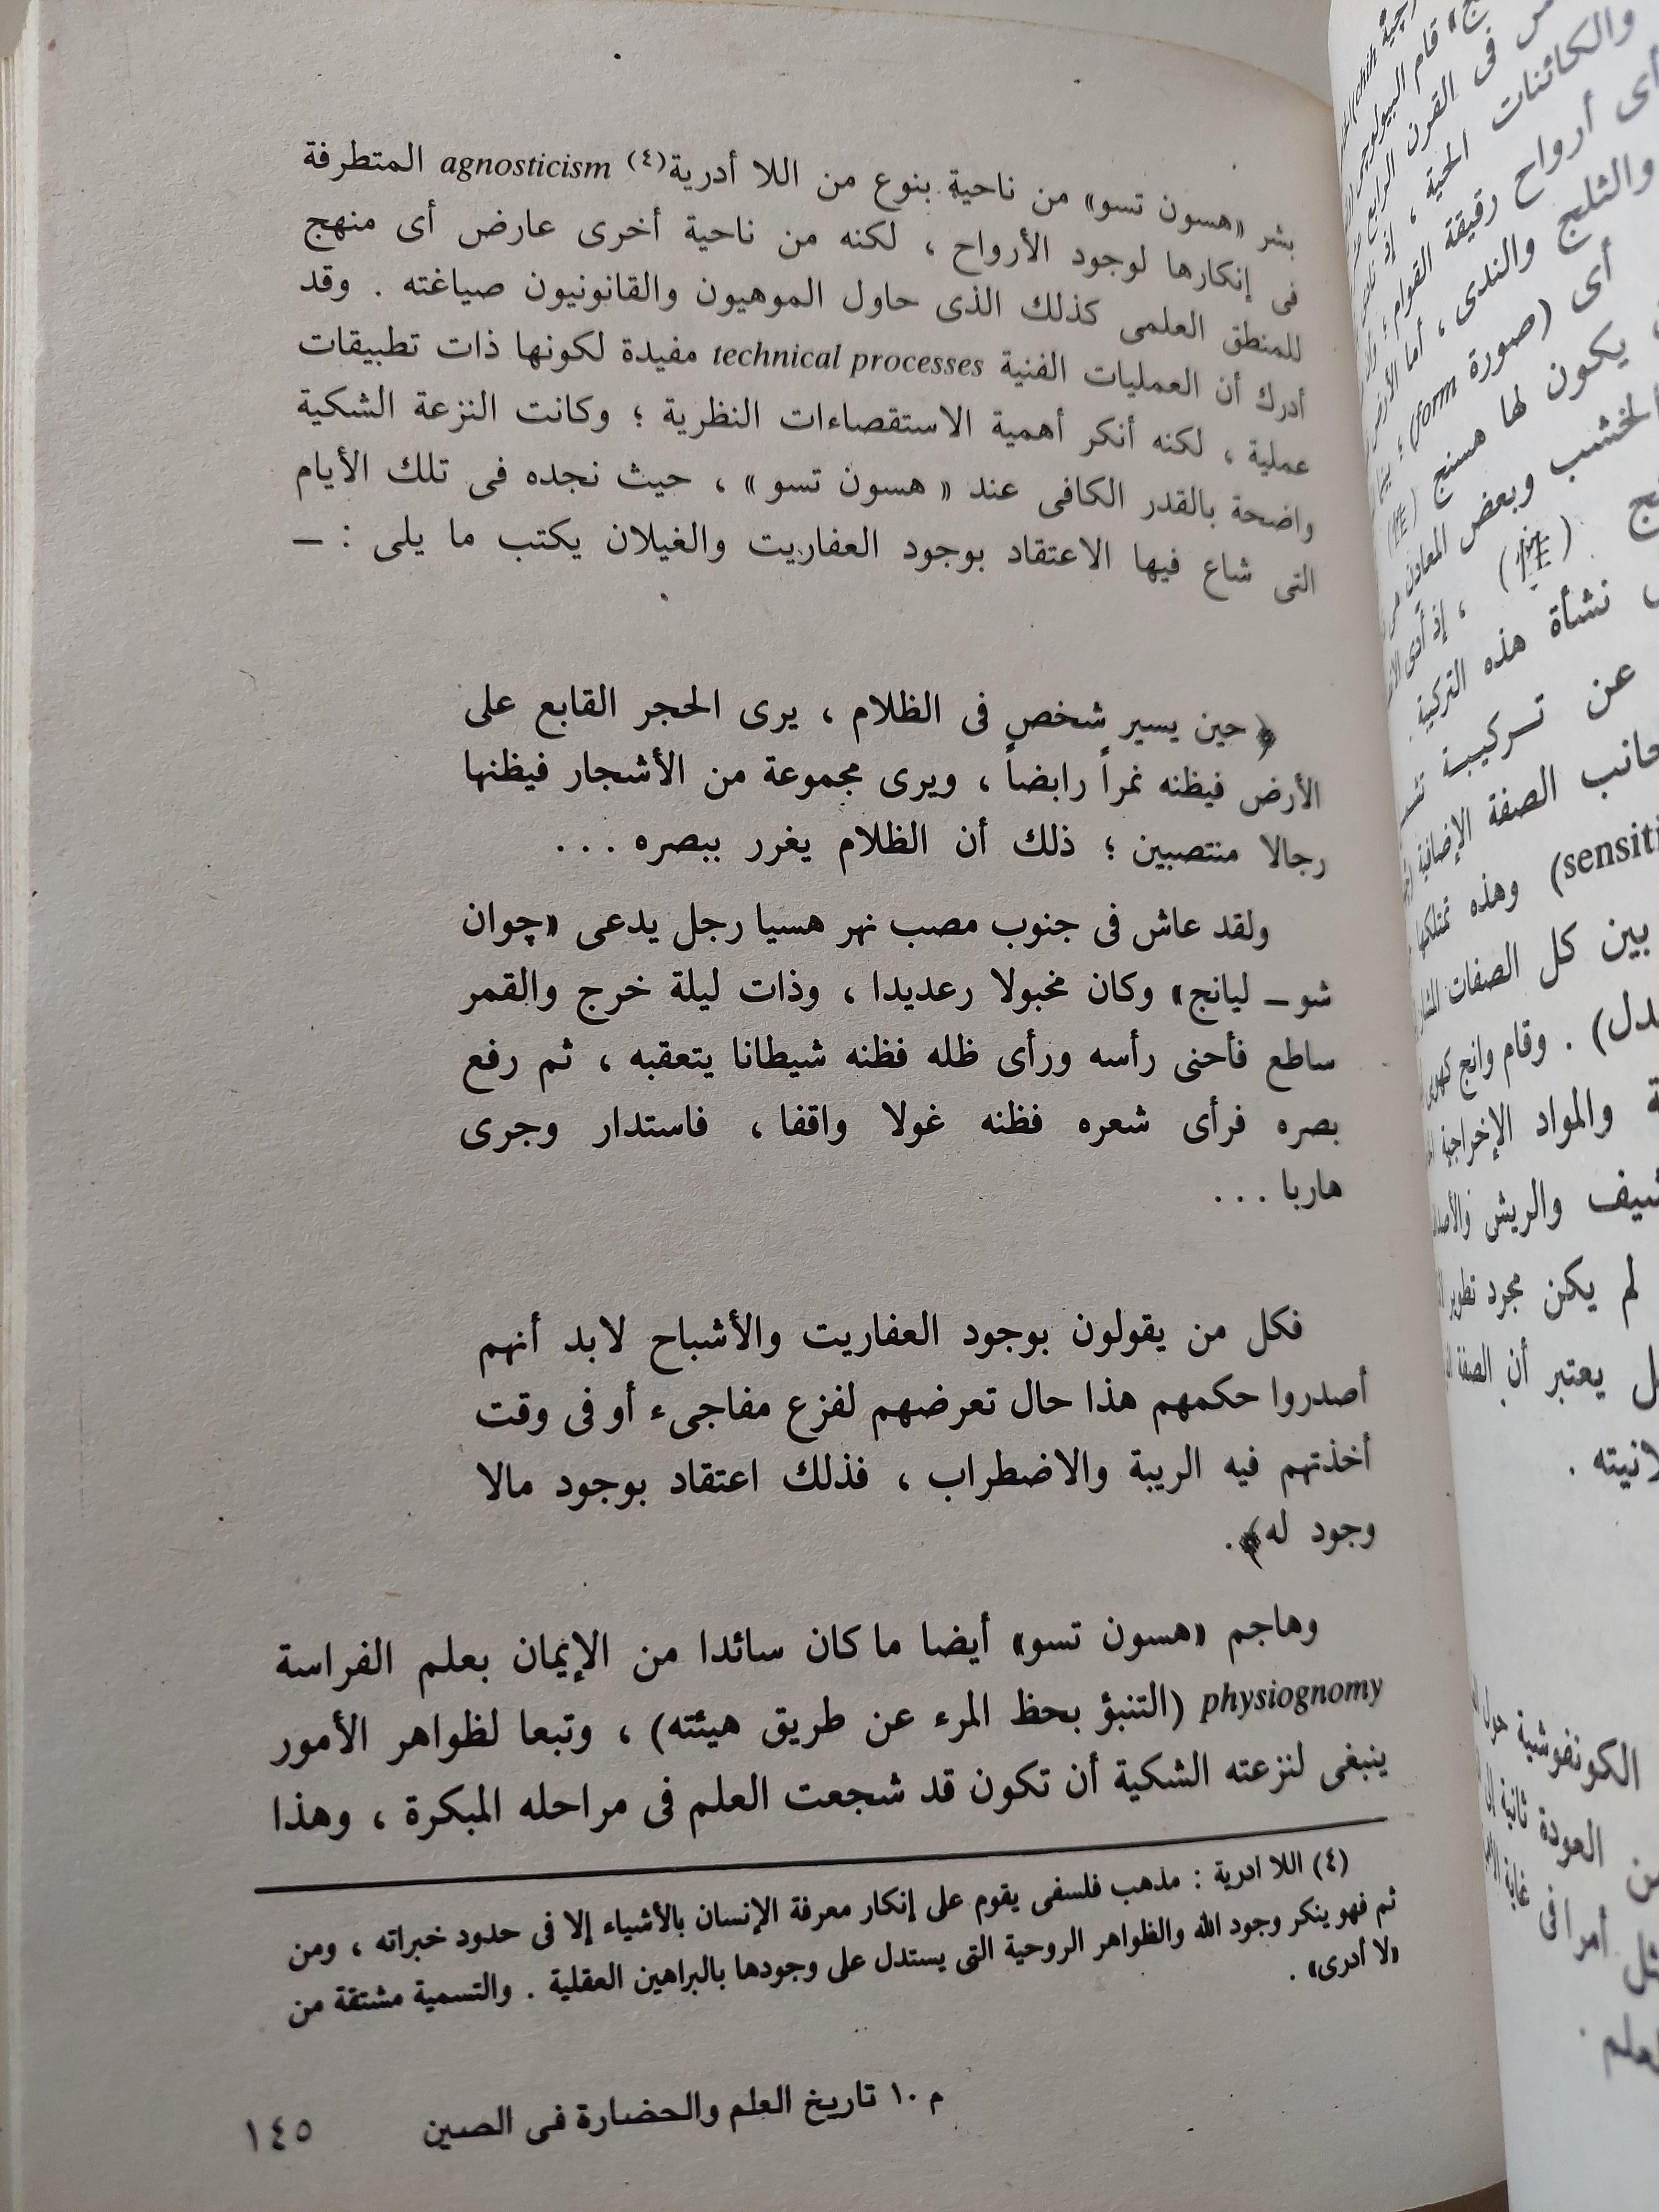 بشر «هسون تسو» من ناحية بنوع من اللا أدرية(٤) agnosticism المتطرفة
فى إنكارها لوجود الأرواح ، لكنه من ناحية أخرى عارض أى منهج
للمنطق العلمى كذلك الذى حاول الموهيون والقانونيون صياغته . وقد
أدرك أن العمليات الفنية technical processes مفيدة لكونها ذات تطبيقات
عملية ، لكنه أنكر أهمية الاستقصاءات النظرية ؛ وكانت النزعة الشكية
واضحة بالقدر الكافى عند « هسون تسو » ، حيث نجده فى تلك الأيام
التى شاع فيها الاعتقاد بوجود العفاريت والغيلان يكتب ما يلى : ـ
﴿حين يسير شخص فى الظلام ، يرى الحجر القابع على
الأرض فيظنه نمراً رابضاً ، ويرى مجموعة من الأشجار فيظنها
رجالا منتصبين ؛ ذلك أن الظلام يغرر ببصره ...
ولقد عاش فى جنوب مصب نهر هسيا رجل يدعى «چوان
شو ـ ليانج» وكان مخبولا رعديدا ، وذات ليلة خرج والقمر
ساطع فأحنى رأسه ورأى ظله فظنه شيطانا يتعقبه ، ثم رفع
بصره فرأى شعره فظنه غولا واقفا ، فاستدار وجرى
هاربا ...
فكل من يقولون بوجود العفاريت والأشباح لابد أنهم
أصدروا حكمهم هذا حال تعرضهم لفزع مفاجىء أو فى وقت
أخذتهم فيه الريبة والاضطراب ، فذلك اعتقاد بوجود مالا
وجود له﴾.
وهاجم «هسون تسو» أيضا ما كان سائدا من الإيمان بعلم الفراسة
physiognomy (التنبؤ بحظ المرء عن طريق هيئته) ، وتبعا لظواهر الأمور
ينبغى لنزعته الشكية أن تكون قد شجعت العلم فى مراحله المبكرة ، وهذا
(٤) اللا ادرية : مذهب فلسفى يقوم على إنكار معرفة الإنسان بالأشياء إلا فى حدود خبراته ، ومن
ثم فهو ينكر وجود الله والظواهر الروحية التى يستدل على وجودها بالبراهين العقلية . والتسمية مشتقة من
«لا أدرى» .
م ١٠ تاريخ العلم والحضارة فى الصين
١٤٥
قام البيولوجى
فى القرن الرابع
والكائنات الحية ، إذ
أى أرواح رقيقة القوام
والثلج والندى ، أما الأرض
أى (صورة form) ؛
يكون لها هسنج
الخشب وبعض المعادن
، إذ أدى
نشأة هذه التركيبة .
عن تركيبة
جانب الصفة الإضافية
(sensiti وهذه تمتلكها
بين كل الصفات
. وقام وانج
والمواد الإخراجية
والريش والأصداف
لم يكن مجرد تطوير
يعتبر أن الصفة
الكونفوشية حول
العودة ثانية إلى
أمرا فى غاية